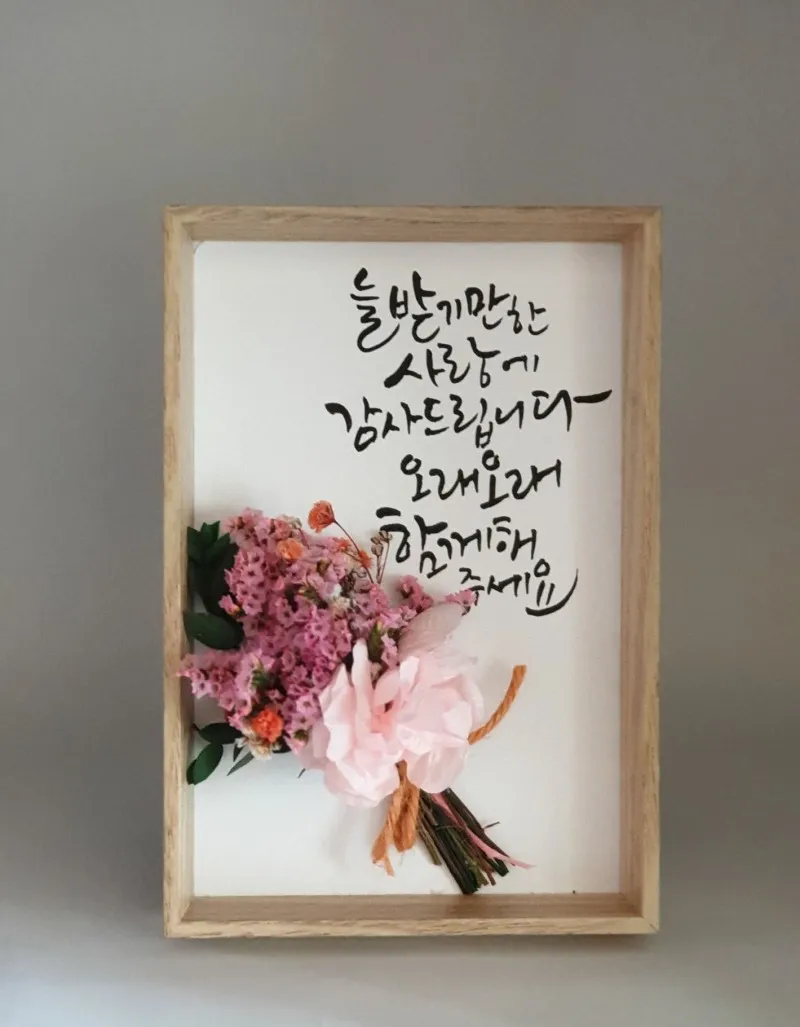 늘 받기만 한
사랑에
감사드립니다
오래오래
함께해
주세요